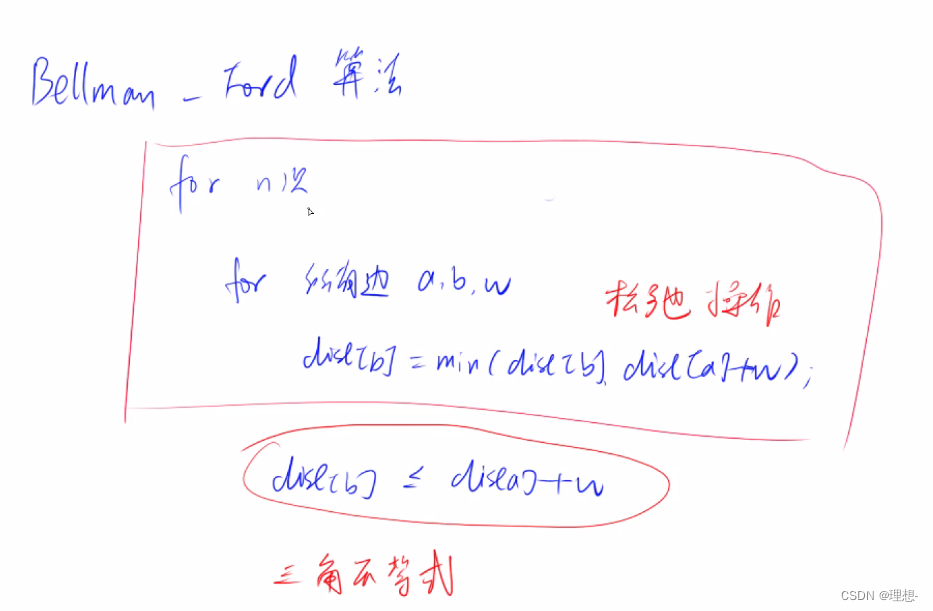 Bellman - Ford 算法
for n次
for 所有边 a,b,w
松弛操作
dist[b] = min(dist[b], dist[a]+w);
dist[b] ≤ dist[a]+w
三角不等式
CSDN @理想-